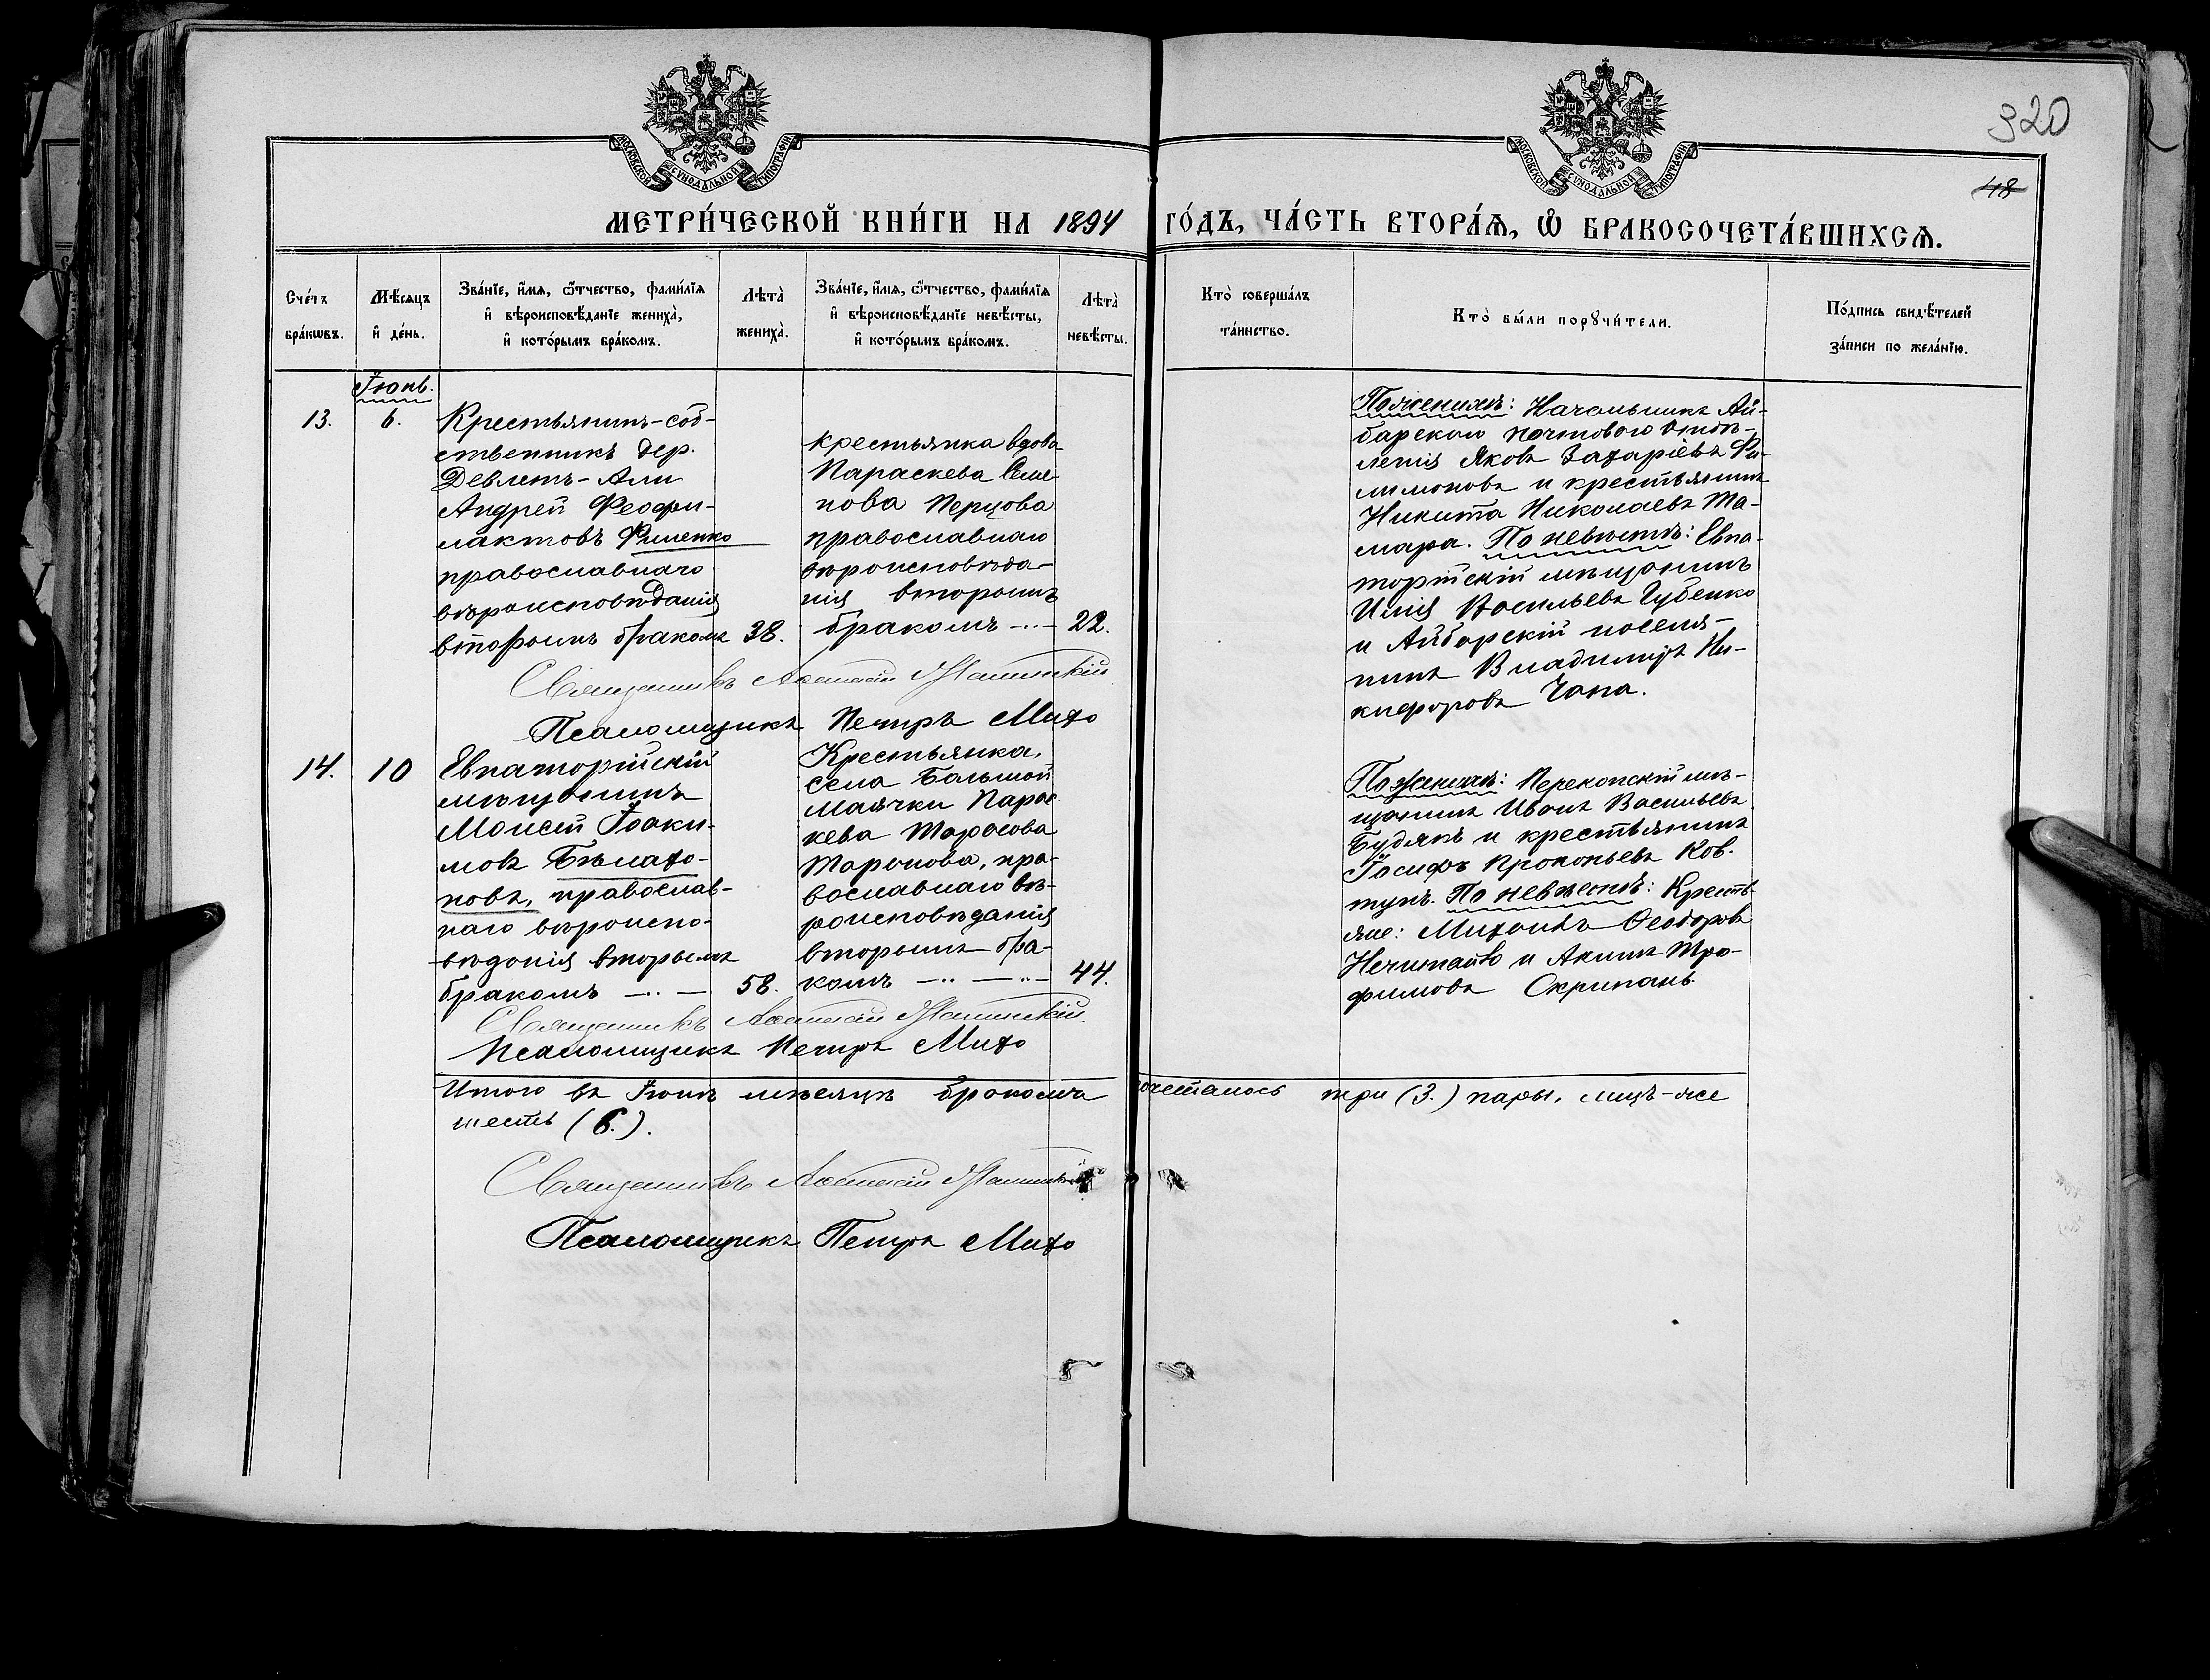 320
48
МОСКОВСКОЙ СУНОДАЛЬНОЙ ТИПОГРАФІИ
МОСКОВСКОЙ СУНОДАЛЬНОЙ ТИПОГРАФІИ
МЕТРИ́ЧЕСКОЙ КНИ́ГИ НА 1894 ГО́ДЪ, ЧА́СТЬ ВТОРА́Ѧ, Ѽ БРАКОСОЧЕТА́ВШИХСѦ.
Сче́тъ
бра́кωвъ.
Мѣ́сяцъ
и҆ де́нь.
Зва́нїе, и҆́мѧ, ѻ҆́тчество, фами́лїѧ
и҆ вѣроисповѣ́данїе жениха̀,
и҆ кото́рымъ бра́комъ.
Лѣта̀
жениха̀.
Зва́нїе, и҆́мѧ, ѻ҆́тчество, фами́лїѧ
и҆ вѣроисповѣ́данїе невѣ́сты,
и҆ кото́рымъ бра́комъ.
Лѣта̀
невѣ́сты.
Кто̀ соверша́лъ
та́инство.
Кто̀ бы́ли порꙋчи́тели.
По́дпись свидѣ́телей
за́писи по жела́нїю.
Іюнь.
13.
6.
Крестьянинъ-соб-
ственникъ дер.
Девлетъ-Али
Андрей Феофи-
лактовъ Филенко
православнаго
вѣроисповѣданія
вторымъ бракомъ
38.
крестьянка вдова
Параскева Семе-
нова Перцова
православнаго
вѣроисповѣда-
нія вторымъ
бракомъ
22.
По женихѣ: Начальникъ Ай-
барскаго почтоваго отдѣ-
ленія Яковъ Захаріевъ Фи-
лимоновъ и крестьянинъ
Никита Николаевъ Та-
мара. По невѣстѣ: Евпа-
торійскій мѣщанинъ
Илія Васильевъ Губенко
и Айбарскій поселя-
нинъ Владимиръ Ни-
кифоровъ Чапа.
Священникъ
Псаломщикъ Петръ Михо
14.
10
Евпаторійскій
мѣщанинъ
Моисей Іоаки-
мовъ Бѣлахо-
новъ, православ-
наго вѣроиспо-
вѣданія вторымъ
бракомъ
58.
Крестьянка
села Большой
Маячки Парас
кева Тарасова
Таранова, пра-
вославнаго вѣ-
роисповѣданія
вторымъ бра-
комъ
44.
По женихѣ: Перекопскій мѣ-
щанинъ Иванъ Васильевъ
Будякъ и крестьянинъ
Іосифъ Прокопьевъ Ков-
тунъ. По невѣстѣ: Кресть-
яне: Михаилъ Ѳеодоровъ
Нечитайло и Акимъ Тро-
фимовъ Скрипань
Священникъ
Псаломщикъ Петръ Михо
Итого въ Іюнѣ мѣсяцѣ бракомъ сочеталось три (3.) пары, лицъ-же
шесть (6.).
Священникъ
Псаломщикъ Петръ Михо